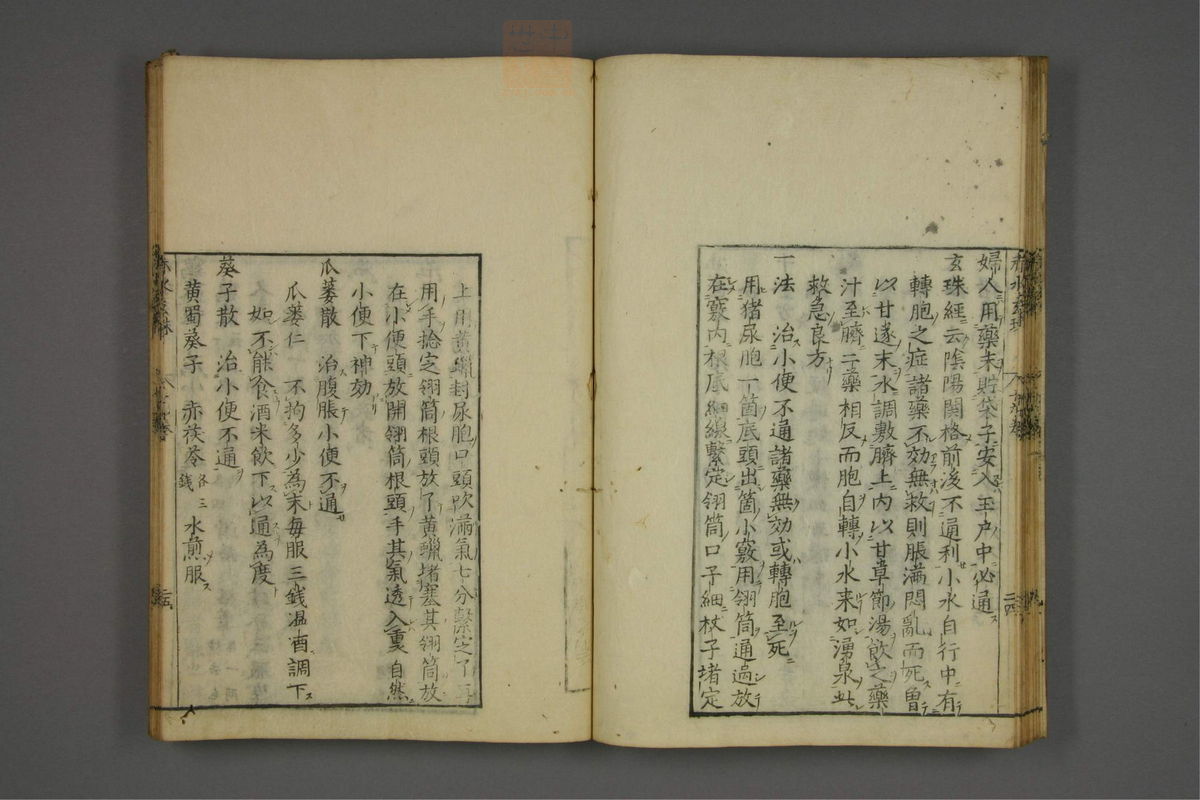 婦人用藥末貯袋子安入玉戸中必通
玄珠經云陰陽関格前後不通利小水自行中有
轉胞之症諸藥不効無救則脹滿悶亂而死曽
以甘遂末水調敷臍上内以甘草節湯飲之藥
汁至臍二藥相反而胞自轉小水来如湧泉此
救急良方
一法 治小便不通諸藥無効或轉胞至死
用猪尿胞一箇底頭出箇小竅用翎筒通過放
在竅内根底細線繫定翎筒口子細杖子堵定
上用黄蠟封尿胞口頭吹滿氣七分繫定了再
用手捻定翎筒根頭放了黄蠟堵塞其翎筒放
在小便頭放開翎筒根頭手其氣透入裏自然
小便下神効
瓜蔞散 治腹脹小便不通
瓜蔞仁 不拘多少為末毎服三銭温酒調下
如不能食酒米飲下以通為度
葵子散 治小便不通
黄蜀葵子 赤茯苓各三銭 水煎服